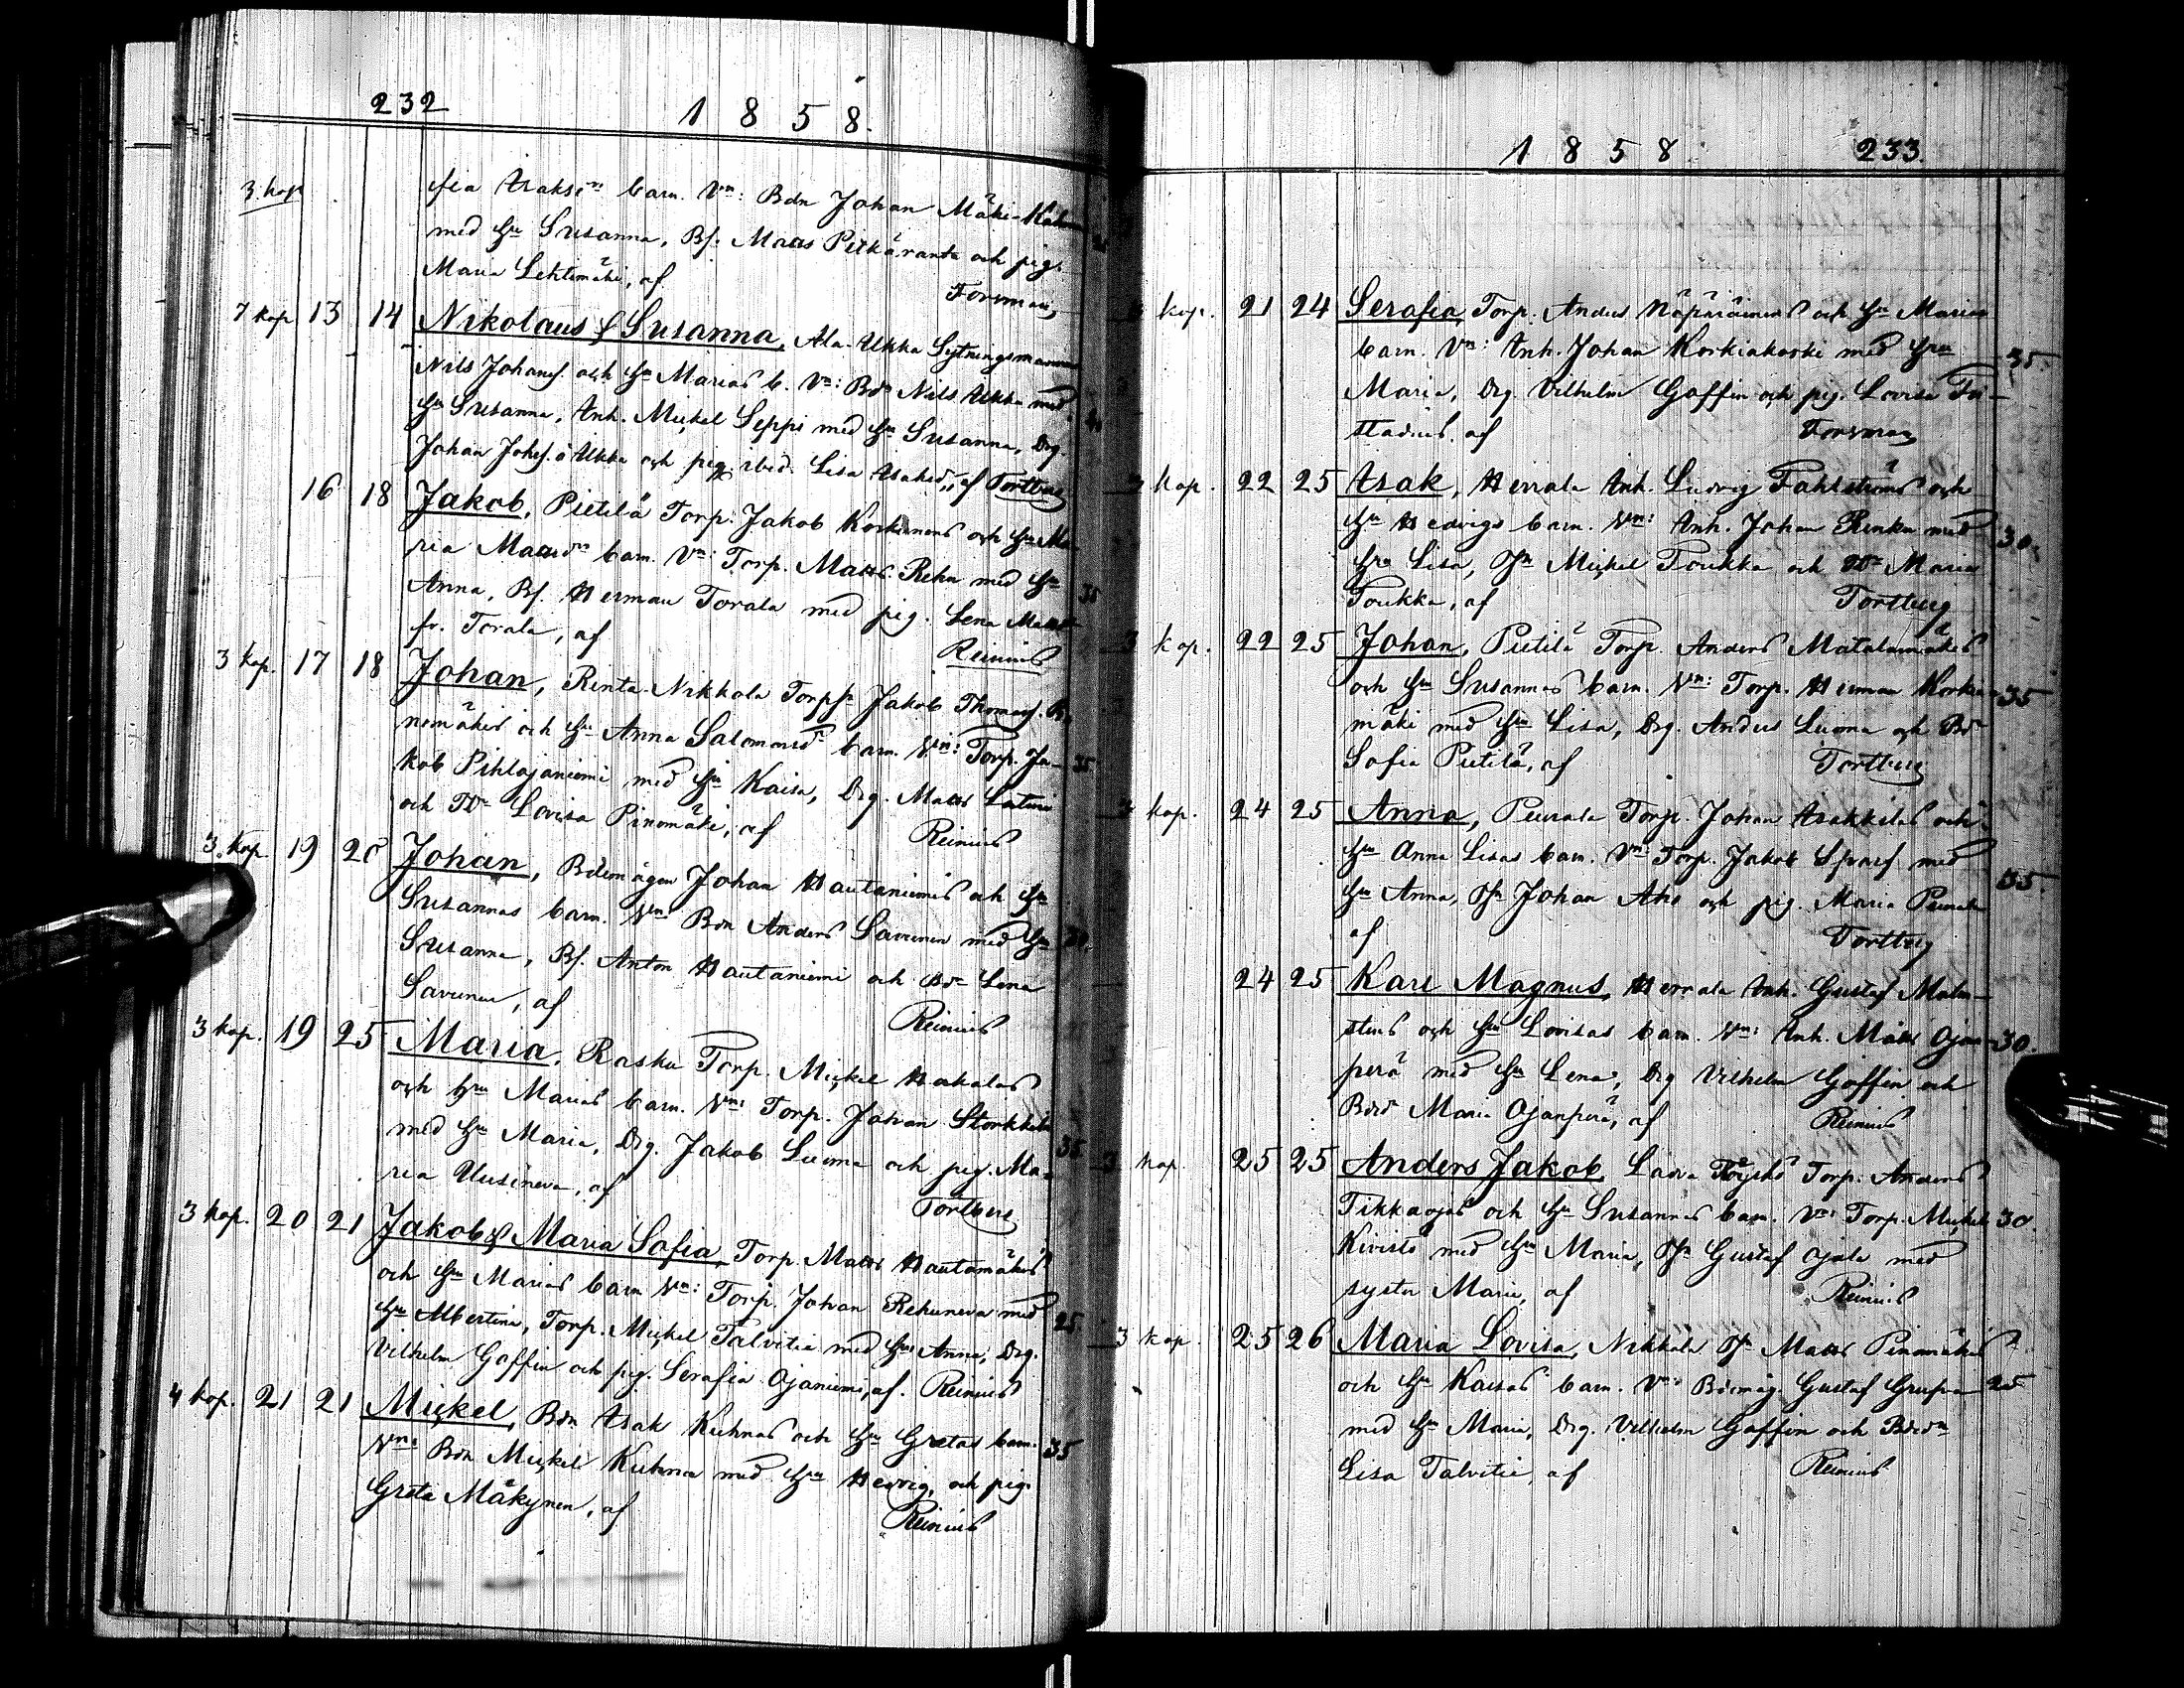 232 1 8 5 8.
3 kop fia Isaksdn barn. Vn: Bdn Johan Mäki-
med Hu Susanna, Bs. Matts Pitkäranta och pig.
Maria Lehtimäki, af Forsman,
7 kop 13 14 Nikolaus & Susanna, Ala-Ukka Sytningsmannen
Nils Johanss. och Hu Marias b. Vn: Bdn Nils Ukka med
Hu Susanna, Inh. Mickel Seppi med Hu Susanna, Drg. 40
Johan Johss. ö Ukka och pig. ibid. Lisa Isaksd., af Tortberg
16 18 Jakob, Pietilä Torp. Jakob Korkimens och Hu Ma-
ria Mattsdn barn. Vn: Torp. Matts Rehn med Hu 35
Anna, Bs. Herman Torala med pig. Lena
fr. Torala, af Reinius
3 kop. 17 18 Johan, Rinta-Nikkola Torpsn Jakob Thomass. Pi-
nomäkis och Hu Anna Salomonsdn barn. Vn: Torp. Ja- 35
kob Pihlajaniemi med Hu Kaisa, Drg. Matts
och Td. Lovisa Pinomäki, af Reinius
3 kop 19 20 Johan, Bdemågen Johan Hautaniemis och Hu
Susannas barn. Vn: Bdn Anders Savunen med Hu 30.
Susanna, Bs. Anton Hautaniemi och Bdr Lena
Savunen, af Reinius
3 kop. 19 25 Maria, Rasku Torp. Mickel Hakalas
och Hu Marias barn. Vn: Torp. Johan Storkkila
med Hu Maria, Drg. Jakob Luoma och pig. Ma- 35
ria Uusineva, af Tortberg
3 kop. 20 21 Jakob & Maria Sofia, Torp. Matts Hautamäkis
och Hu Marias barn Vn: Torp. Johan Rehuneva med
Hu Albertina, Torp. Mickel Talvitie med Hu Anna, Drg. 25
Vilhelm Goffin och pig. Serafia Ojaniemi, af. Reinius
4 kop. 21 21 Mickel, Bdn Isak Kuhnas och Hu Gretas barn.
Vn: Bdn Mickel Kuhna med Hu Hedvig, och pig. 35
Greta Mäkynen, af Reinius
1 8 5 8. 233.
kop. 21 24 Serafia, Torp. Anders Näpäräinens och Hu Marias
barn. Vn: Inh. Johan Korkiakoski med Hu 35.
Maria, Drg. Vilhelm Goffin och pig. Lovisa Fri-
stadius, af Forsman
3 kop. 22 25 Isak, Herrala Inh. Ludvig Fahlströms och
Hu Hedvigs barn. Vn: Inh. Johan Renko med 30.
Hu Lisa, Ysn Mickel Toukka och Td. Maria
Toukka, af Tortberg
3 kop. 22 25 Johan, Pietilä Torp. Anders Matalamäkis
och Hu Susannas barn. Vn: Torp. Herman Korkia- 35
mäki med Hu Lisa, Drg. Anders Luoma och Bdr
Sofia Pietilä, af Tortberg
3 kop. 24 25 Anna, Peurala Torp. Johan Isakkilas och
Hu Anna Lisas barn. Vn: Torp. Jakob Sparf med
Hu Anna, Ysn Johan Aho och pig. Maria Peurala 35.
af Tortberg
24 25 Karl Magnus, Herrala Inh. Gustaf Malm-
stens och Hu Lovisas barn. Vn: Inh. Matts Ojan- 30.
perä med Hu Lena, Drg Vilhelm Goffin och
Bdrdn Maria Ojanperä, af Reinius
3 kop. 25 25 Anders Jakob, Lava Torp. Anders
Tikkaojas och Hu Susannas barn. Vn: Torp. Mickel 30.
Kivistö med Hu Maria, Ysn Gustaf Ojala med
syster Maria, af Reinius
3 kop. 25 26 Maria Lovisa, Nikkola Ysn Matts Pinomäkis
och Hu Kaisas barn. Vn: Bdemåg. Gustaf 25
med Hu Maria, Drg. Vilhelm Goffin och Bdrdn
Lisa Talvitie, af Reinius